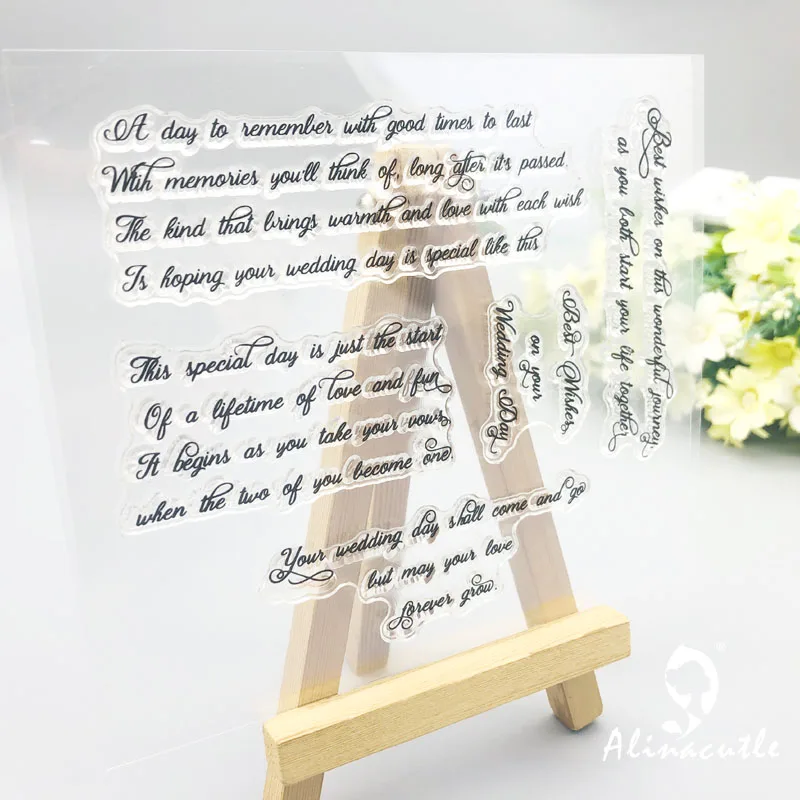 A day to remember with good times to last
With memories you'll think of, long after it's passed.
The kind that brings warmth and love with each wish
Is hoping your wedding day is special like this
This special day is just the start
Of a lifetime of love and fun
It begins as you take your vows
when the two of you become one.
Best Wishes,
on your
Wedding Day
Best wishes on this wonderful journey,
as you both start your life together
Your wedding day shall come and go
but may your love
forever grow.
Alinacutle